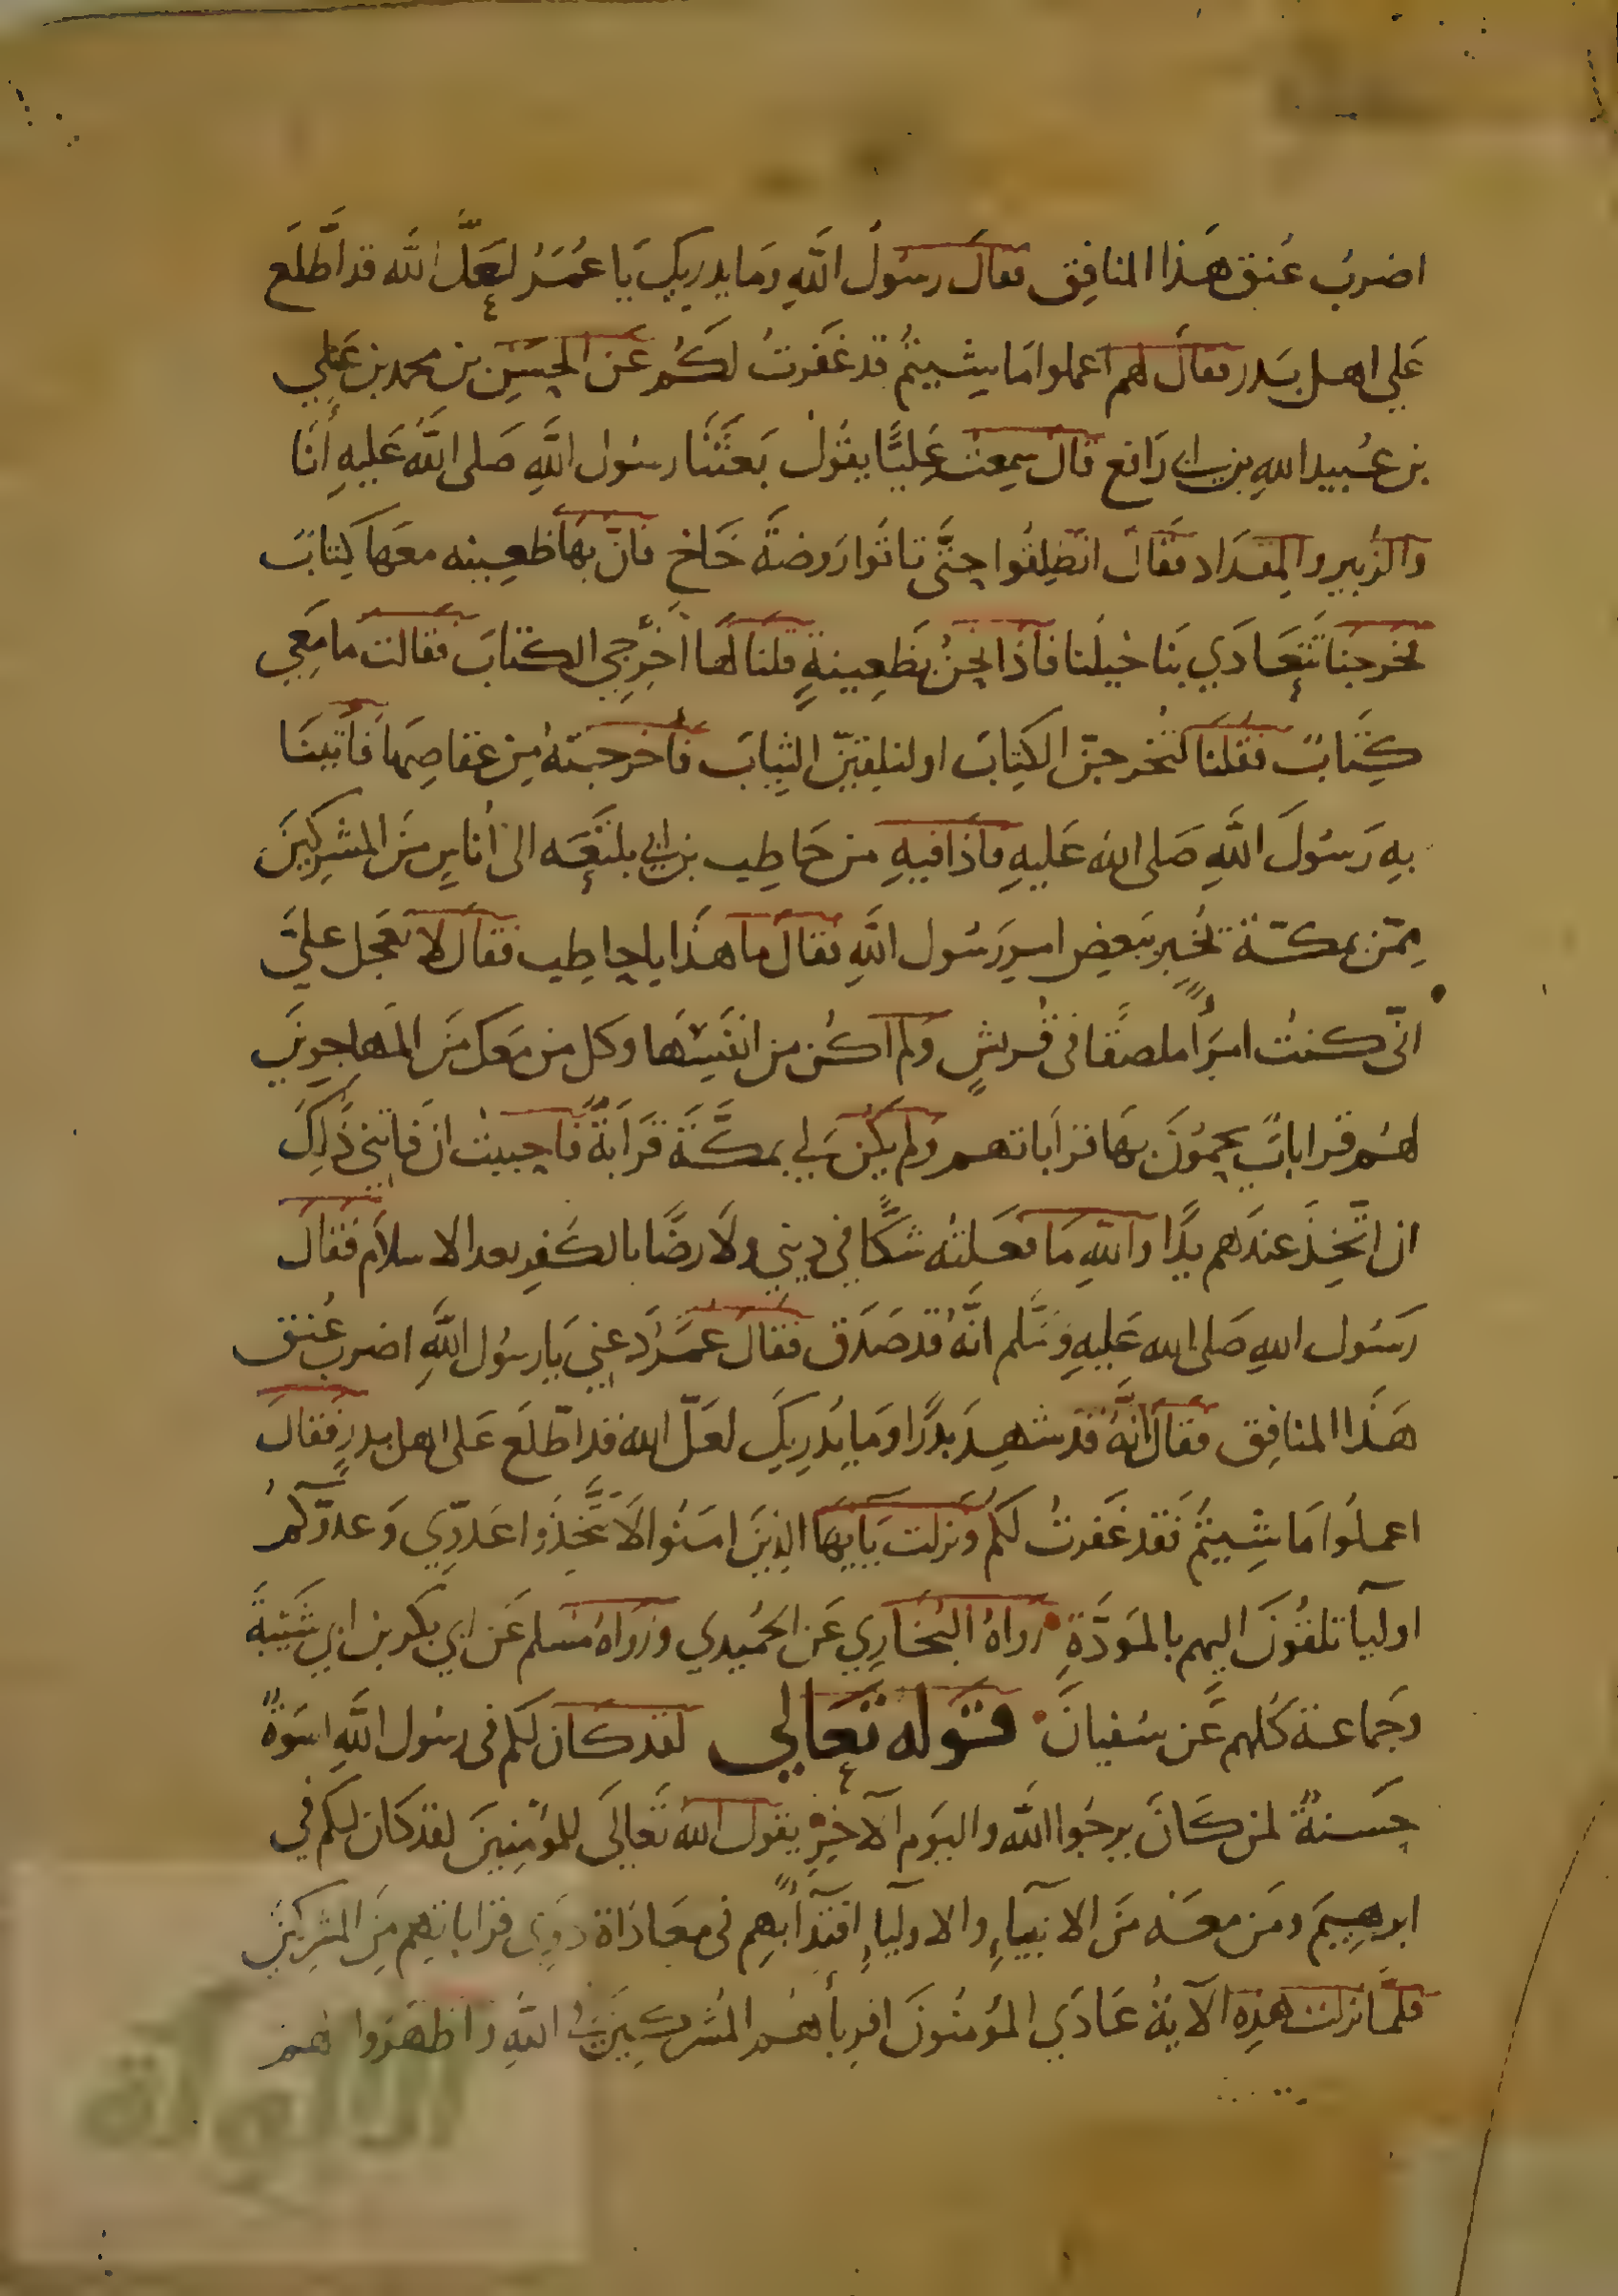 اضرب عُنق هَذا المنافِق فقالَ رسُولُ اللَّهِ ومَا يدريكِ يَا عُمَرُ لعَلَّ اللَّه قد اطَّلَع
عَلي اهل بَدر فقالَ لهم اعملوا مَا شيتُم قد غَفَرتُ لكُم عَن الحسَنِ بن محمد بن عَلي
بن عُبيد اللهِ بن ابي رَافع قالَ سَمِعتُ عَليًّا يقُولُ بَعَثَنَا رسُول اللَّهِ صَلى اللَّهُ عَليهِ أنَا
والزُبير والمِقدَاد فقالَ انطَلِقُوا حتَّى تاتُوا رَوضَةَ خَاخ فانّ بهَا ظعِينه معَها كِتابٌ
فخرجنَا تتَعَادَي بنَا خيلُنا فاذَا نحنُ بظَعِينةٍ قلنا لهَا أخرِجي الكتابَ فقالت ما مَعِي
كِتَابٌ فقلنَا لتُخرجنّ الكِتابَ او لنلقينّ الثيابَ فاخرجَتهُ مِن عقاصِهَا فأتَينَا
بهِ رَسُولَ اللَّهِ صَلى الله عَليهِ فاذَا فيهِ من حَاطِب بن ابي بلتَعَه الى أناسٍ مَن المشركِينَ
مِمّن بمكّة تُخبر بَبعضِ امر رَسُول اللَّهِ فقالَ ما هذَا يا حاطِب فقالَ لا تعجَل عليَّ
انّى كنتُ امرَأً ملصقًا فى قُريشٍ ولم اكُن من انفسهَا وكل من معَك مَن المهاجرِينَ
لهُم قراباتٌ يحمُونَ بهَا قرَاباتهم ولم يكُن لي بمكَّةَ قرَابَةٌ فأحببتُ ان فاتَني ذَلِكَ
ان اتَّخِذَ عندَهم يدًا واللهِ مَا فعَلتُه شكًّا في دِيني ولَا رضًا بالكفرِ بعد الاسلَام فقالَ
رَسُول اللهِ صَلى الله عَليهِ وَسَّلم انّهُ قد صَدَق فقالَ عمَرُ دَعني يَا رسُول اللَّهِ اضرب عُنق
هَذا المنافِق فقالَ انّهُ قَد شهِدَ بدرًا ومَا يُدرِيكَ لعَلّ الله قد اطّلَع عَلى اهل بدرٍ فقالَ
اعملُوا مَا شِيتُم فقد غَفَرتُ لكم ونزلت يَآيهَا الذِينَ امَنُوا لَا تتَّخِذُوا عَدوِّي وَعدوّكُم
اوليآ تلقُونَ اليهم بالمَودَّةِ رواهُ البُخَارِي عَن الحُميدي ورَواهُ مُسلم عَن ابي بَكر بن ابي شَيبَةَ
وجَماعة كلهم عَن سُفيانَ قوله تعَالي لقد كان لكم فى رسُول اللَّهِ اسوَةٌ
حَسنةٌ لمن كَانَ يرجُوا اللَّه واليَوم الآخِرِ يقول اللهُ تَعالَى للمُؤمِنِينَ لقد كان لكم في
ابرهِيمَ ومَن معَه مَن الانبيَآءِ والاوليآءِ اقتدآً بهِم فى معَادَاة ذوِى قرَاباتهِم مِنَ المشركِينَ
فلمّا نزلت هَذِه الآيةُ عَادَي المؤمنُونَ اقربآهُم المُشركِينَ في اللهِ واظهَروا لهم